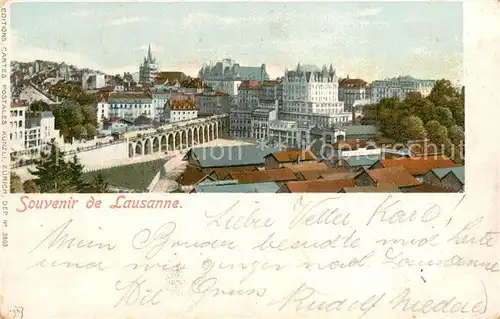 EDITIONS CARTES POSTALES KÜNZLI ZÜRICH, DEP. Nº 3868
Souvenir de Lausanne.
Liebe Vetter Karl!
Mein Bruder besuchte mich heute
und wir gingen nach Lausanne.
Mit Gruss Rudolf